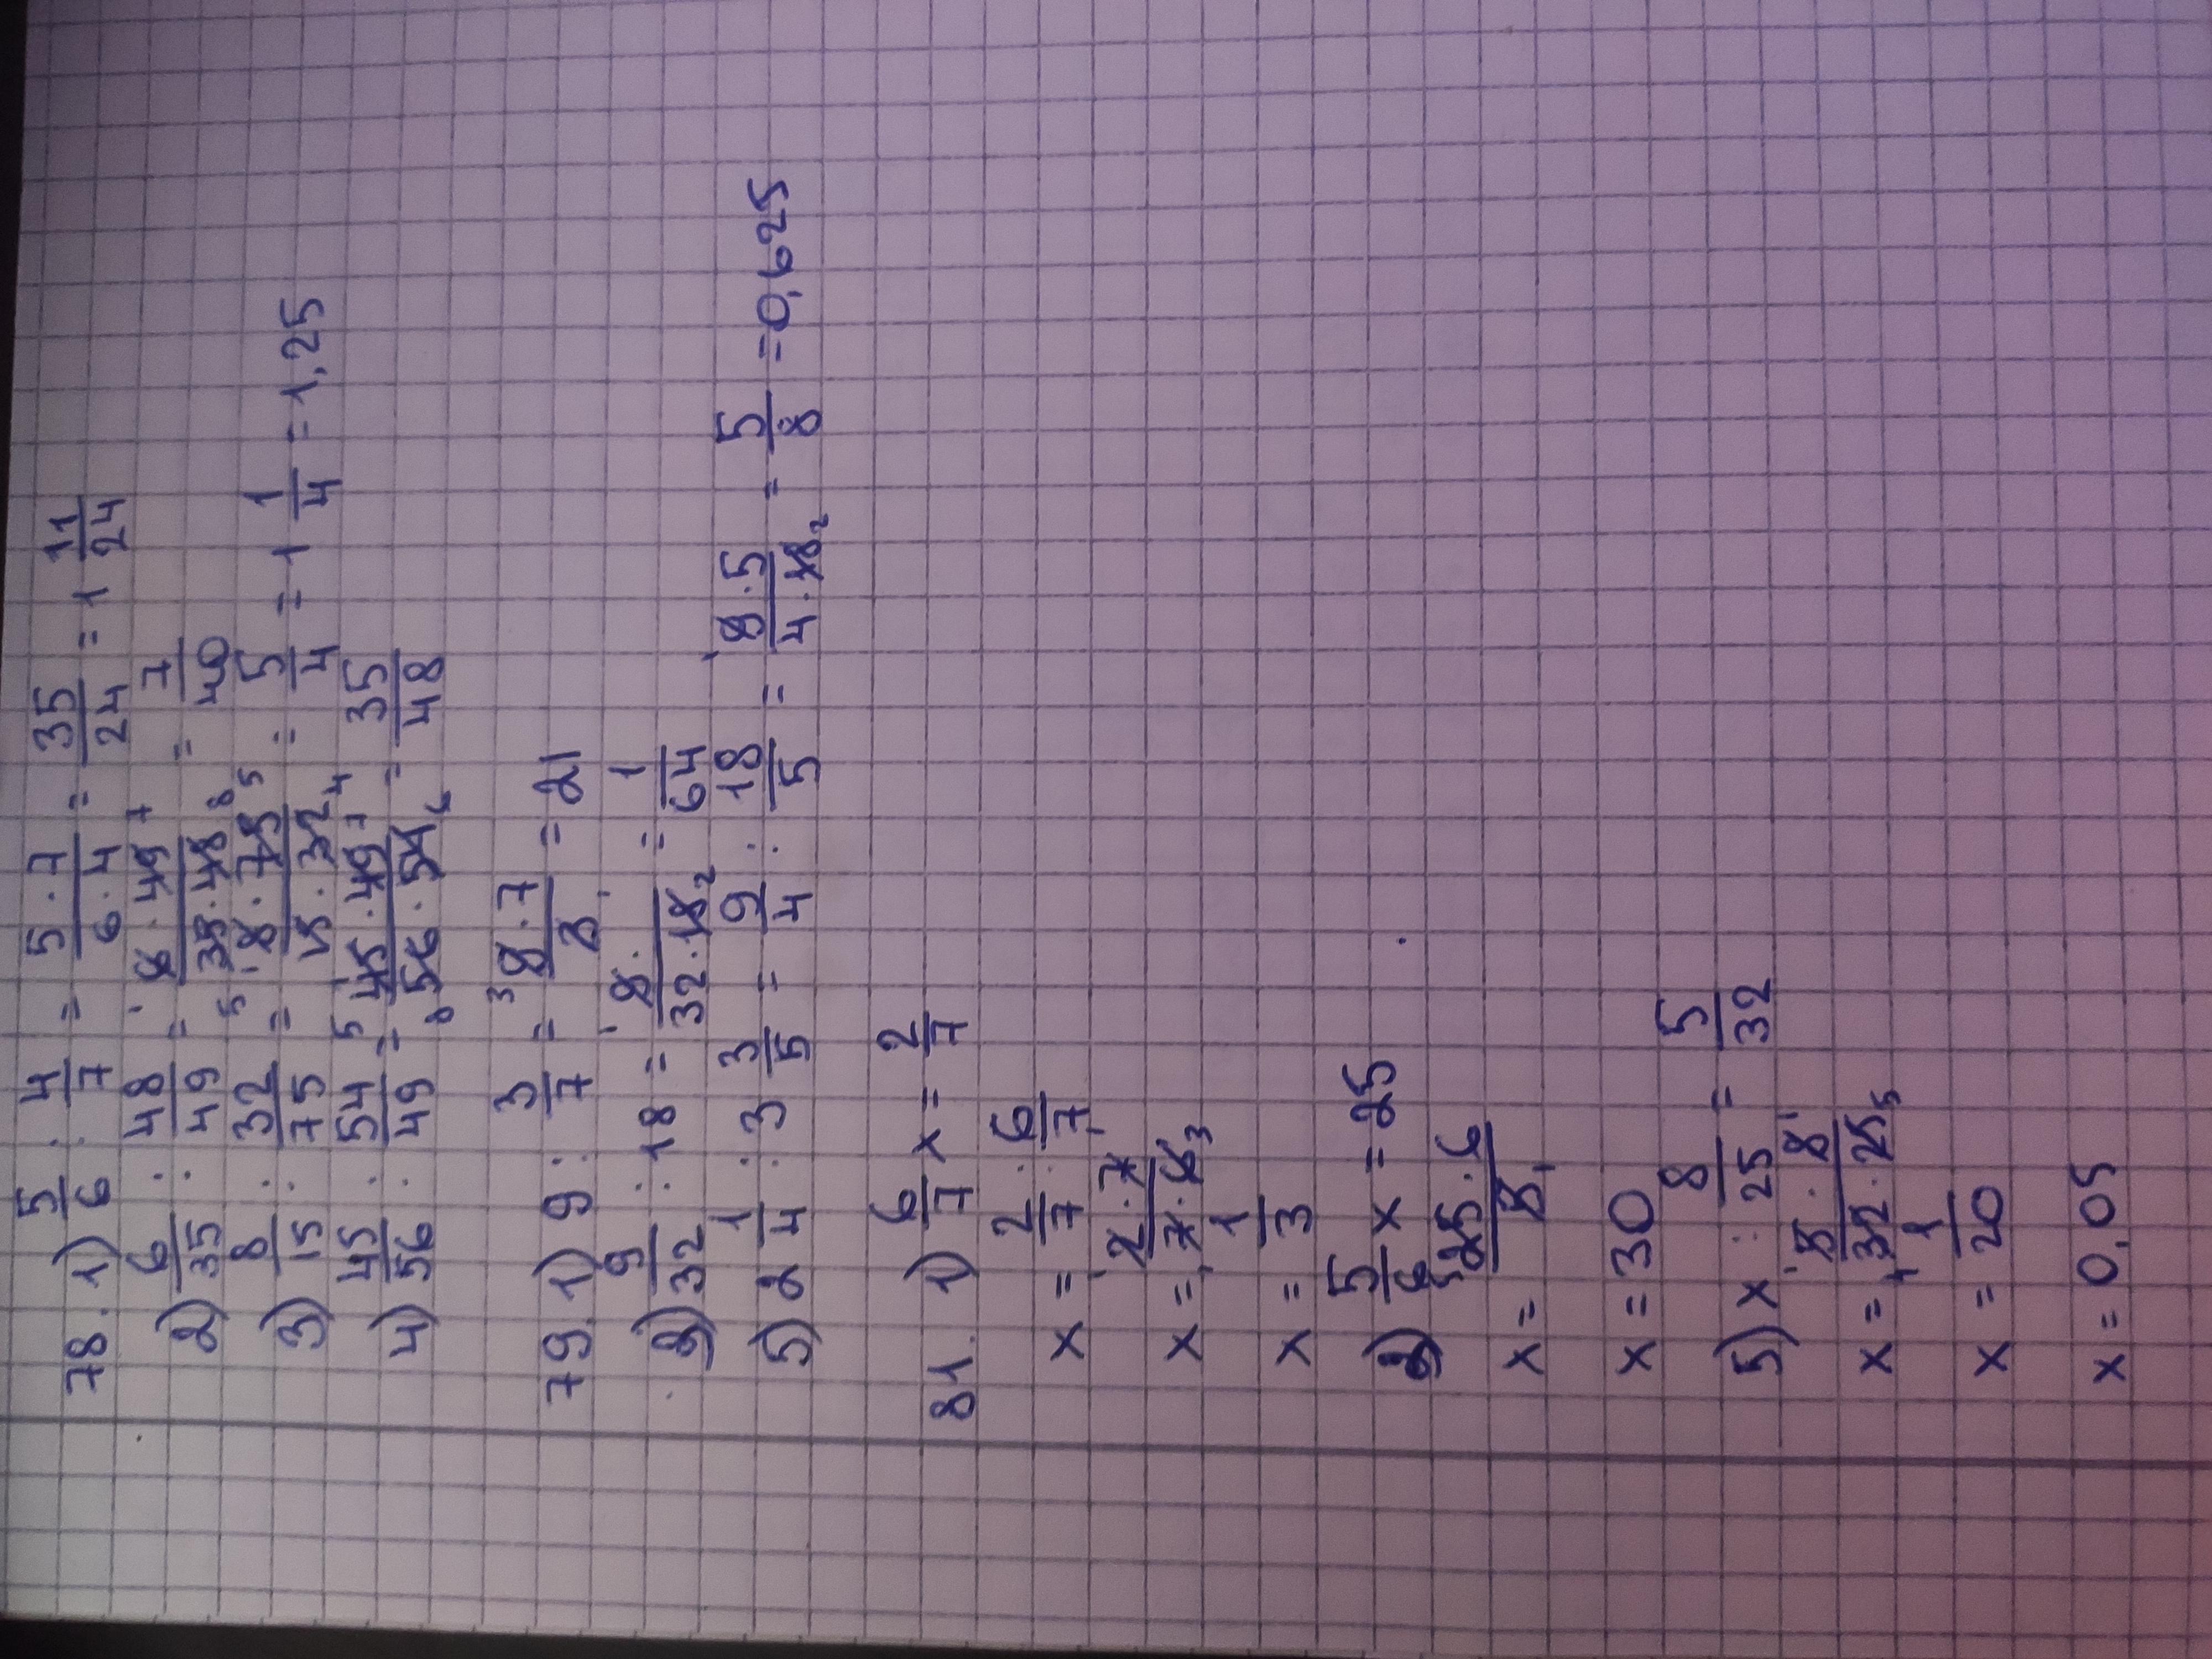 78. 1) 5/6 : 4/7 = 5·7/6·4 = 35/24 = 1 11/24
2) 6/35 : 48/49 = 6·49/35·48 = 7/40
3) 8/15 : 32/75 = 8·75/15·32 = 5/4 = 1 1/4 = 1,25
4) 45/56 : 54/49 = 45·49/56·54 = 35/48
79. 1) 9 : 3/7 = 9·7/3 = 21
3) 9/32 : 18 = 9·/32·18 = 1/64
5) 2 1/4 : 3 3/5 = 9/4 : 18/5 = 9·5/4·18 = 5/8 = 0,625
81. 1) 6/7 x = 2/7
x = 2/7 : 6/7
x = 2·7/7·6
x = 1/3
3) 5/6 x = 25
x = 25·6/5
x = 30
5) x : 8/25 = 5/32
x = 5·8/32·25
x = 1/20
x = 0,05